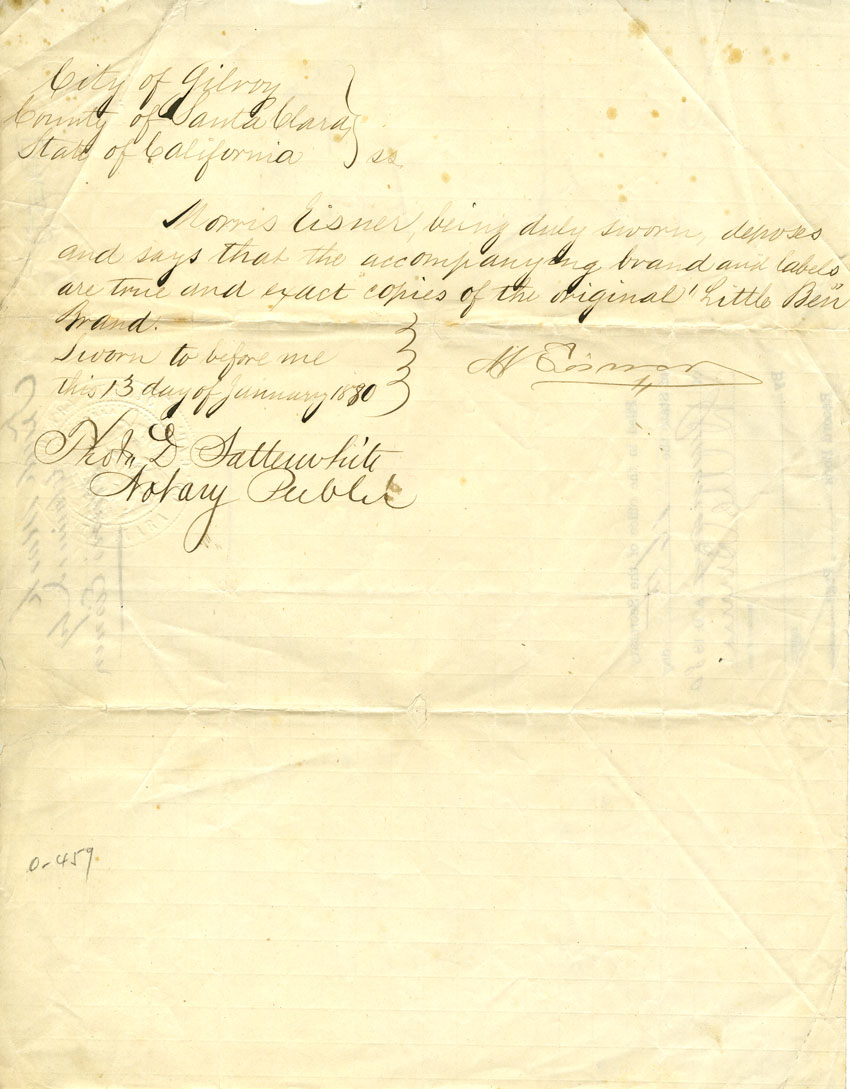 City of Gilroy
County of Santa Clara
State of California } ss
Morris Eisner, being duly sworn, deposes
and says that the accompanying brand and labels
are true and exact copies of the original "Little Ben"
Brand.
Sworn to before me
this 13 day of January 1880
M Eisner
Thos. D Satterwhite
Notary Public
0-459